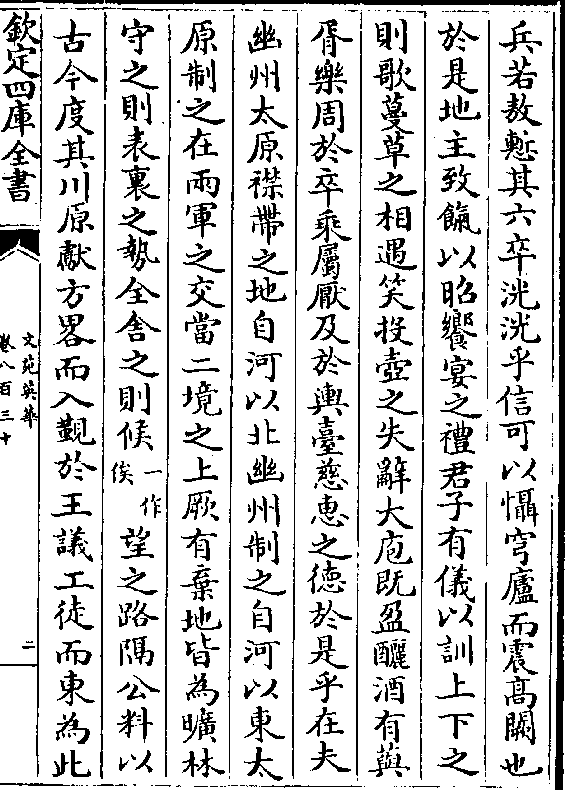 兵若敖慙其六卒洸洸乎信可以懾穹廬而震髙闕也
於是地主致餼以昭饗宴之禮君子有儀以訓上下之
則歌蔓草之相遇笑投壺之失辭大庖既盈釃酒有藇
胥樂周於卒乘屬厭及於輿臺慈惠之德於是乎在夫
幽州太原襟帶之地自河以北幽州制之自河以東太
原制之在兩軍之交當二境之上厥有棄地皆為曠林
守之則表裏之勢全舎之則候一作俟望之路隔公料以
古今度其川原獻方畧而入覲於王議工徒而東為此
欽定四庫全書
文苑英華
卷八百三十
二